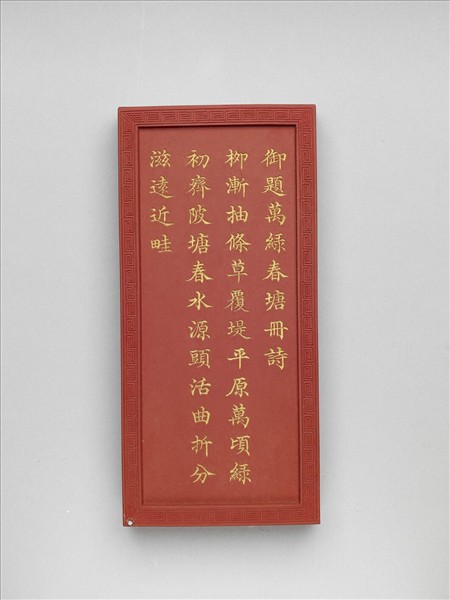 御題萬綠春塘冊詩
栁漸抽條草覆堤平原萬頃緑
初齊陂塘春水源頭活曲折分
滋遠近畦